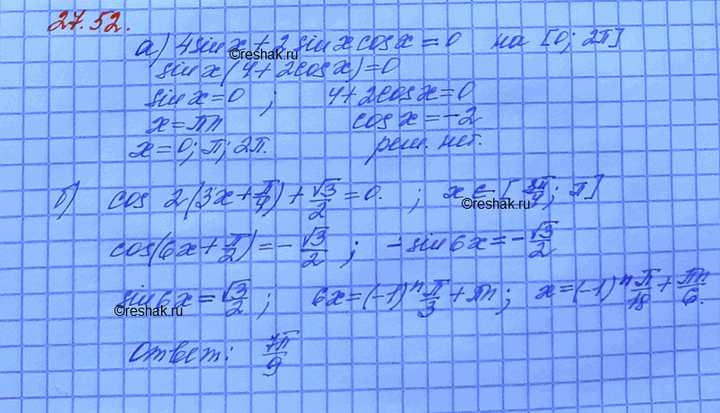 27.52.
а) 4sinx + 2 sinx cosx = 0 на [0; 2π]
©reshak.ru
sinx(4+2cosx)=0
sinx=0 ; 4+2cosx=0
x=πn cosx=-2
x=0; π; 2π. реш. нет.
б) cos 2(3x+π/4)+√3/2=0. ; x∈[3π/4; π]
©reshak.ru
cos(6x+π/2)=-√3/2 ; -sin6x=-√3/2
sin6x=√3/2 ; 6x=(-1)ⁿ π/3 + πn; x=(-1)ⁿ π/18 + πn/6.
©reshak.ru
Ответ: 7π/9